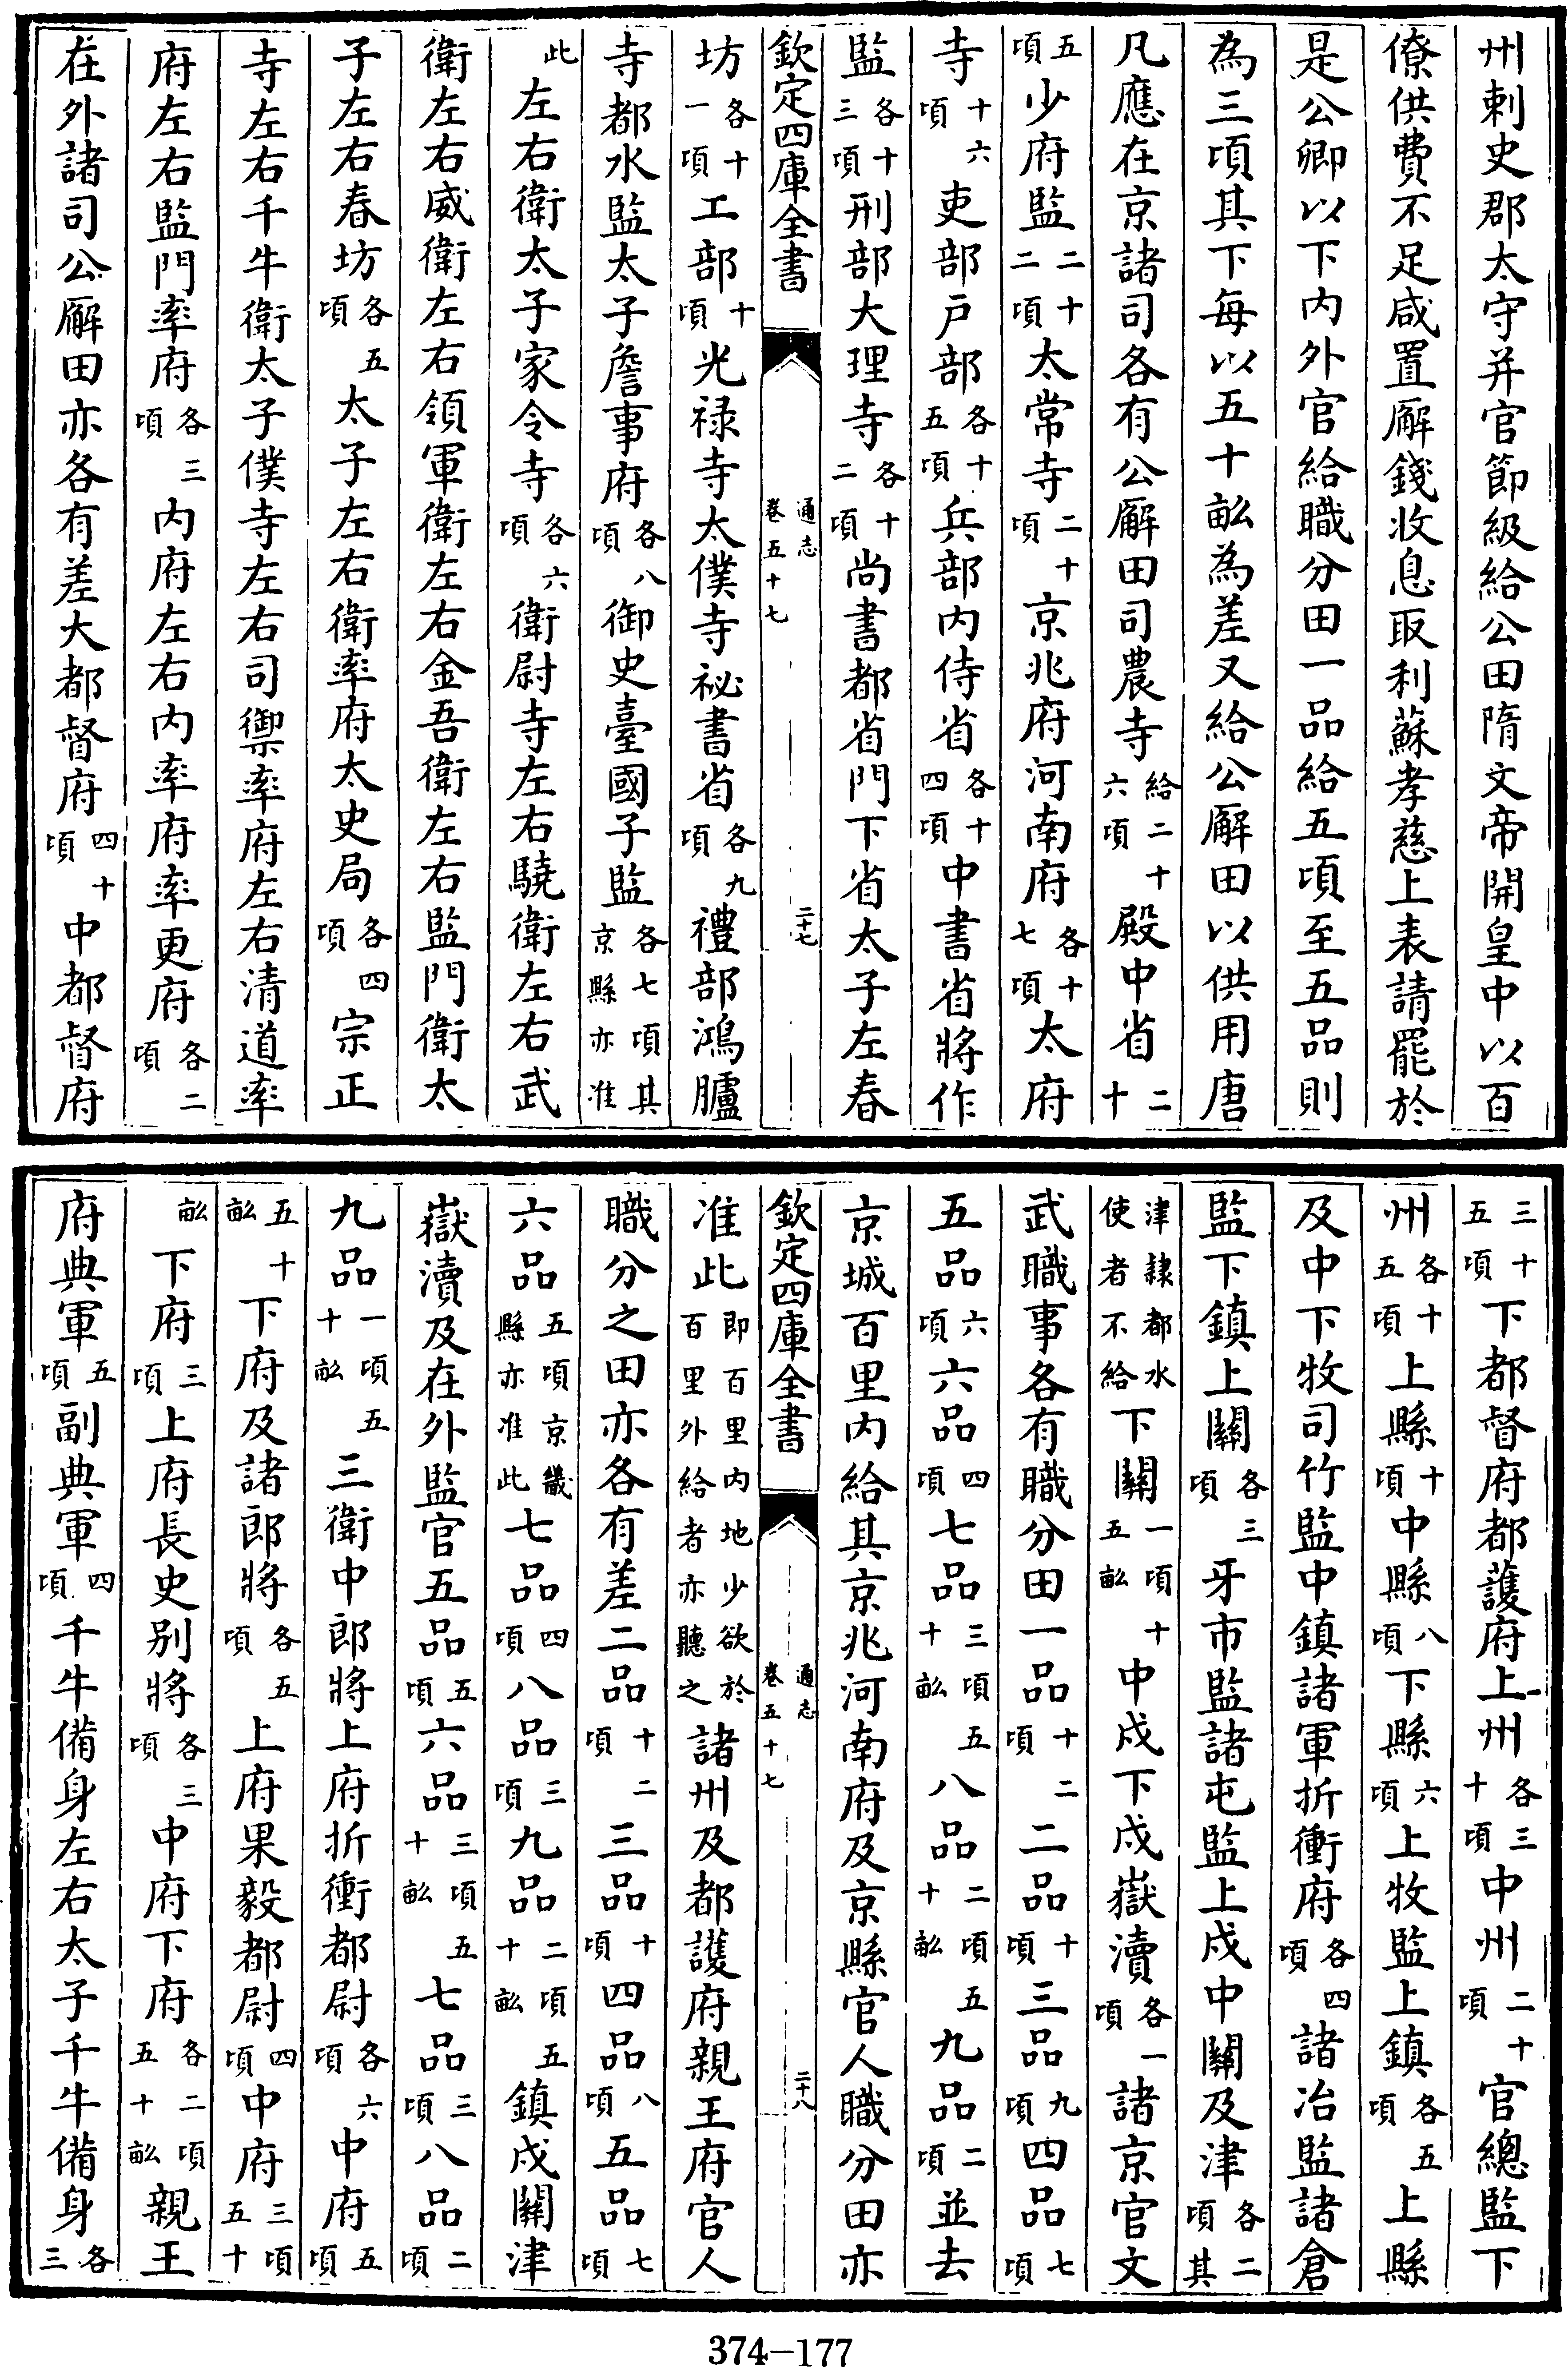 州刺史郡太守并官節級給公田隋文帝開皇中以百
僚供費不足咸置廨錢收息取利蘇孝慈上表請罷於
是公卿以下内外官給職分田一品給五頃至五品則
為三頃其下每以五十畝為差又給公廨田以供用唐
凡應在京諸司各有公廨田司農寺給二十六頃殿中省二十
五頃少府監二十二頃太常寺二十頃京兆府河南府各十七頃太府
寺十六頃吏部戶部各十五頃兵部内侍省各十四頃中書省將作
監各十三頃刑部大理寺各十二頃尚書都省門下省太子左春
欽定四庫全書 通志卷五十七 二十七
坊各十一頃工部十頃光禄寺太僕寺祕書省各九頃禮部鴻臚
寺都水監太子詹事府各八頃御史臺國子監各七頃其京縣亦准
此左右衛太子家令寺各六頃衛尉寺左右驍衛左右武
衛左右威衛左右領軍衛左右金吾衛左右監門衛太
子左右春坊各五頃太子左右衛率府太史局各四頃宗正
寺左右千牛衛太子僕寺左右司禦率府左右清道率
府左右監門率府各三頃内府左右内率府率更府各二頃
在外諸司公廨田亦各有差大都督府四十頃中都督府
三十五頃下都督府都護府上州各三十頃中州二十頃官總監下
州各十五頃上縣十頃中縣八頃下縣六頃上牧監上鎮各五頃上縣
及中下牧司竹監中鎮諸軍折衝府各四頃諸冶監諸倉
監下鎮上關各三頃牙市監諸屯監上戍中關及津各二頃其
津隸都水使者不給下關一頃五十畝中戍下戍嶽瀆各一頃諸京官文
武職事各有職分田一品十二頃二品十頃三品九頃四品七頃
五品六頃六品四頃七品三頃五十畝八品二頃五十畝九品二頃並去
京城百里内給其京兆河南府及京縣官人職分田亦
欽定四庫全書 通志卷五十七 二十八
准此即百里内地少欲於百里外給者亦聽之諸州及都護府親王府官人
職分之田亦各有差二品十二頃三品十頃四品八頃五品七頃
六品五頃京畿縣亦准此七品四頃八品三頃九品二頃五十畝鎮戍關津
嶽瀆及在外監官五品五頃六品三頃五十畝七品三頃八品二頃
九品一頃五十畝三衛中郎將上府折衝都尉各六頃中府五頃
五十畝下府及諸郎將各五頃上府果毅都尉四頃中府三頃五十
畝下府三頃上府長史别將各三頃中府下府各二頃五十畝親王
府典軍五頃副典軍四頃千牛備身左右太子千牛備身各三
374—177